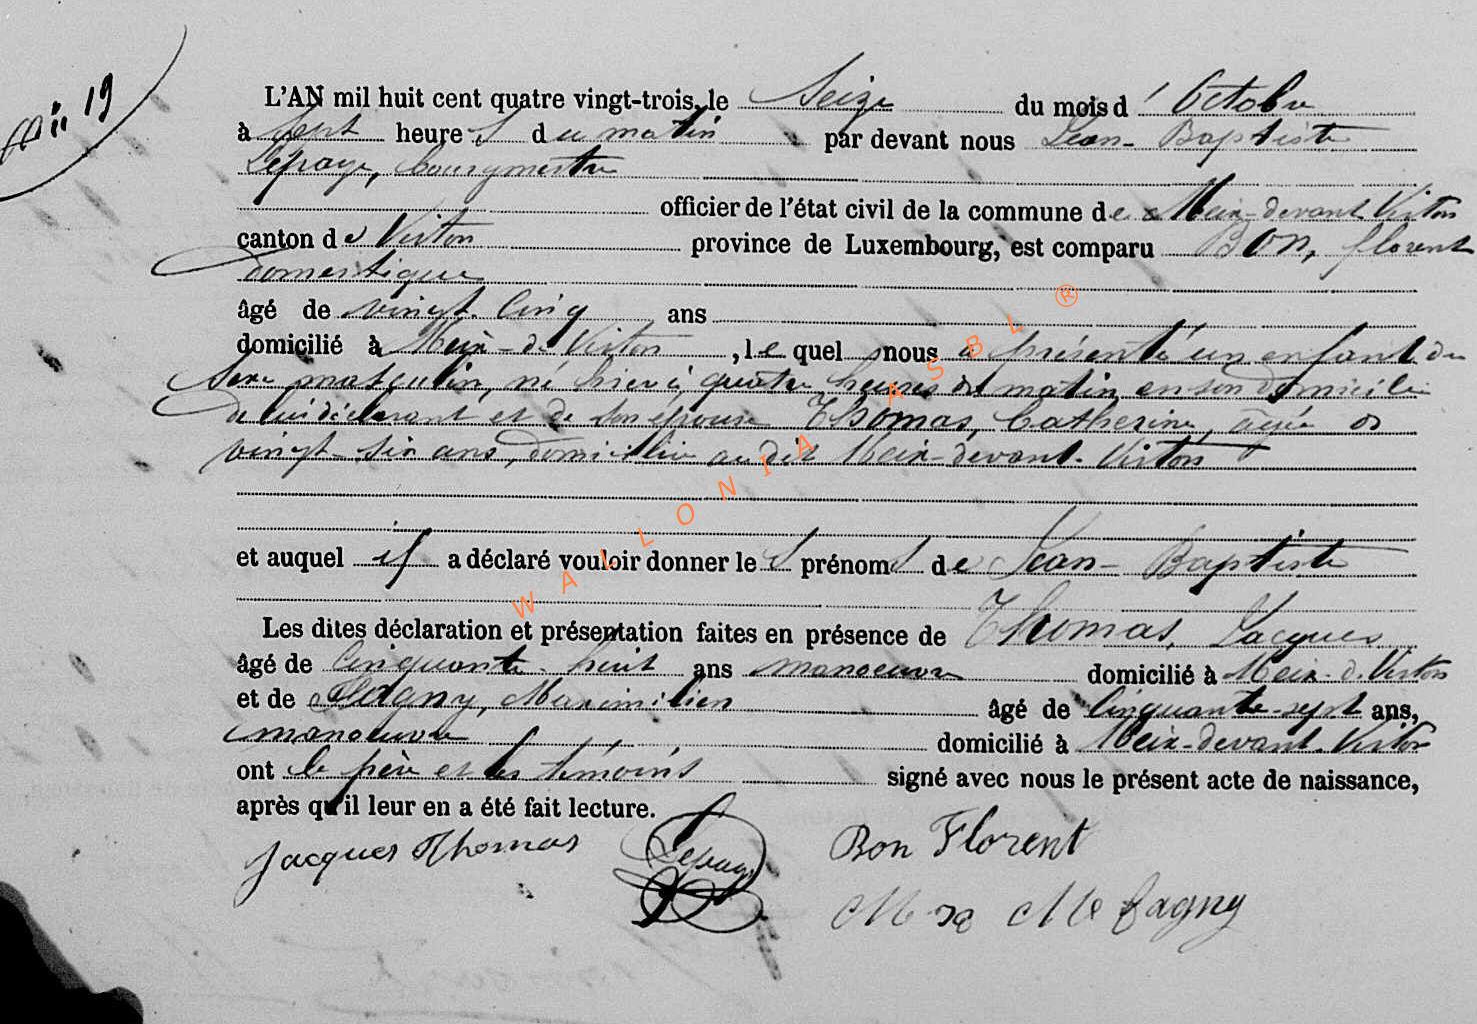 19
L'AN mil huit cent quatre vingt-trois, le Seize du mois d' Octobre
à sept heures du matin par devant nous Jean-Baptiste
Lepage, bourgmestre
officier de l'état civil de la commune de Meix-devant Virton
canton de Virton province de Luxembourg, est comparu Bon, florent
domestique
âgé de vingt-cinq ans
domicilié à Meix-dt Virton, lequel nous a présenté un enfant du
sexe masculin, né hier à quatre heures du matin en son domicile
de lui déclarant et de son épouse Thomas, Catherine, agée de
vingt-six ans, domiciliée au dit Meix-devant-Virton
et auquel il a déclaré vouloir donner les prénoms de Jean-Baptiste
Les dites déclaration et présentation faites en présence de Thomas, Jacques
âgé de cinquante-huit ans manoeuvre domicilié à Meix-d-Virton
et de Maximilien âgé de cinquante-sept ans,
manoeuvre domicilié à Meix-devant-Virton
ont le père et les témoins signé avec nous le présent acte de naissance,
après qu'il leur en a été fait lecture.
Jacques Thomas Lepage Bon Florent
WALLONIA ASBL ®